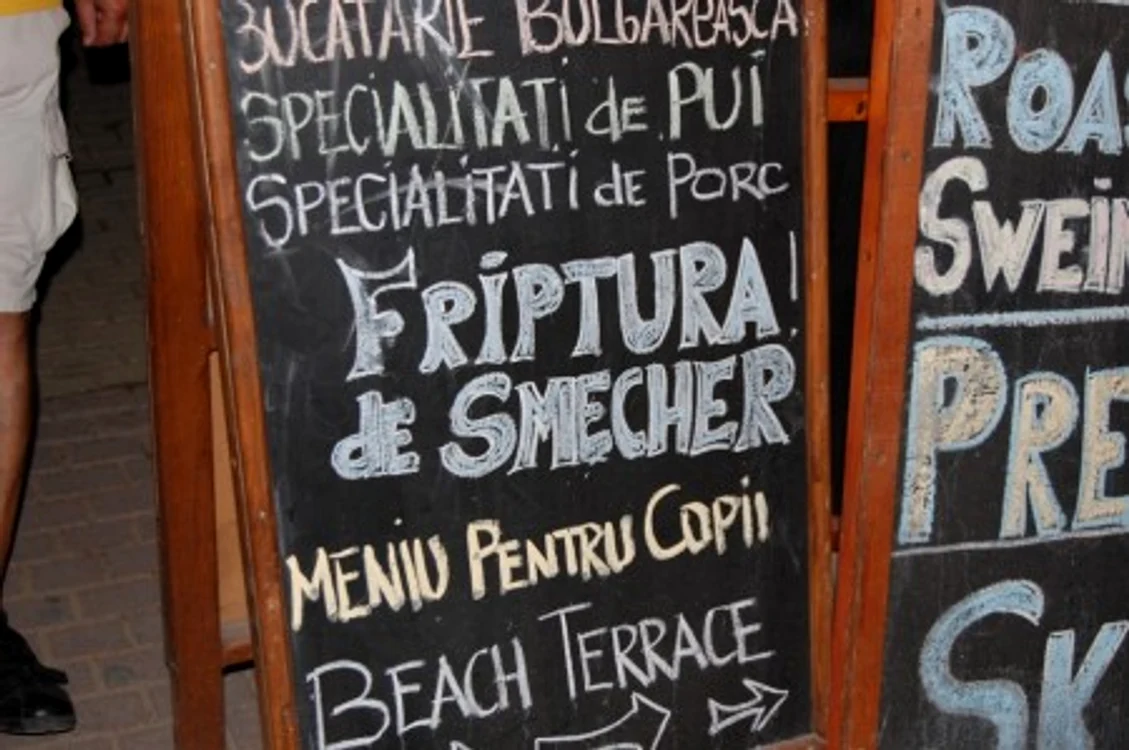 BUCATARIE BULGAREASCA
SPECIALITATI de PUI
SPECIALITATI de PORC
FRIPTURA!
de SMECHER
MENIU PENTRU COPII
BEACH TERRACE
ROAS
SWEIN
PRE
SK